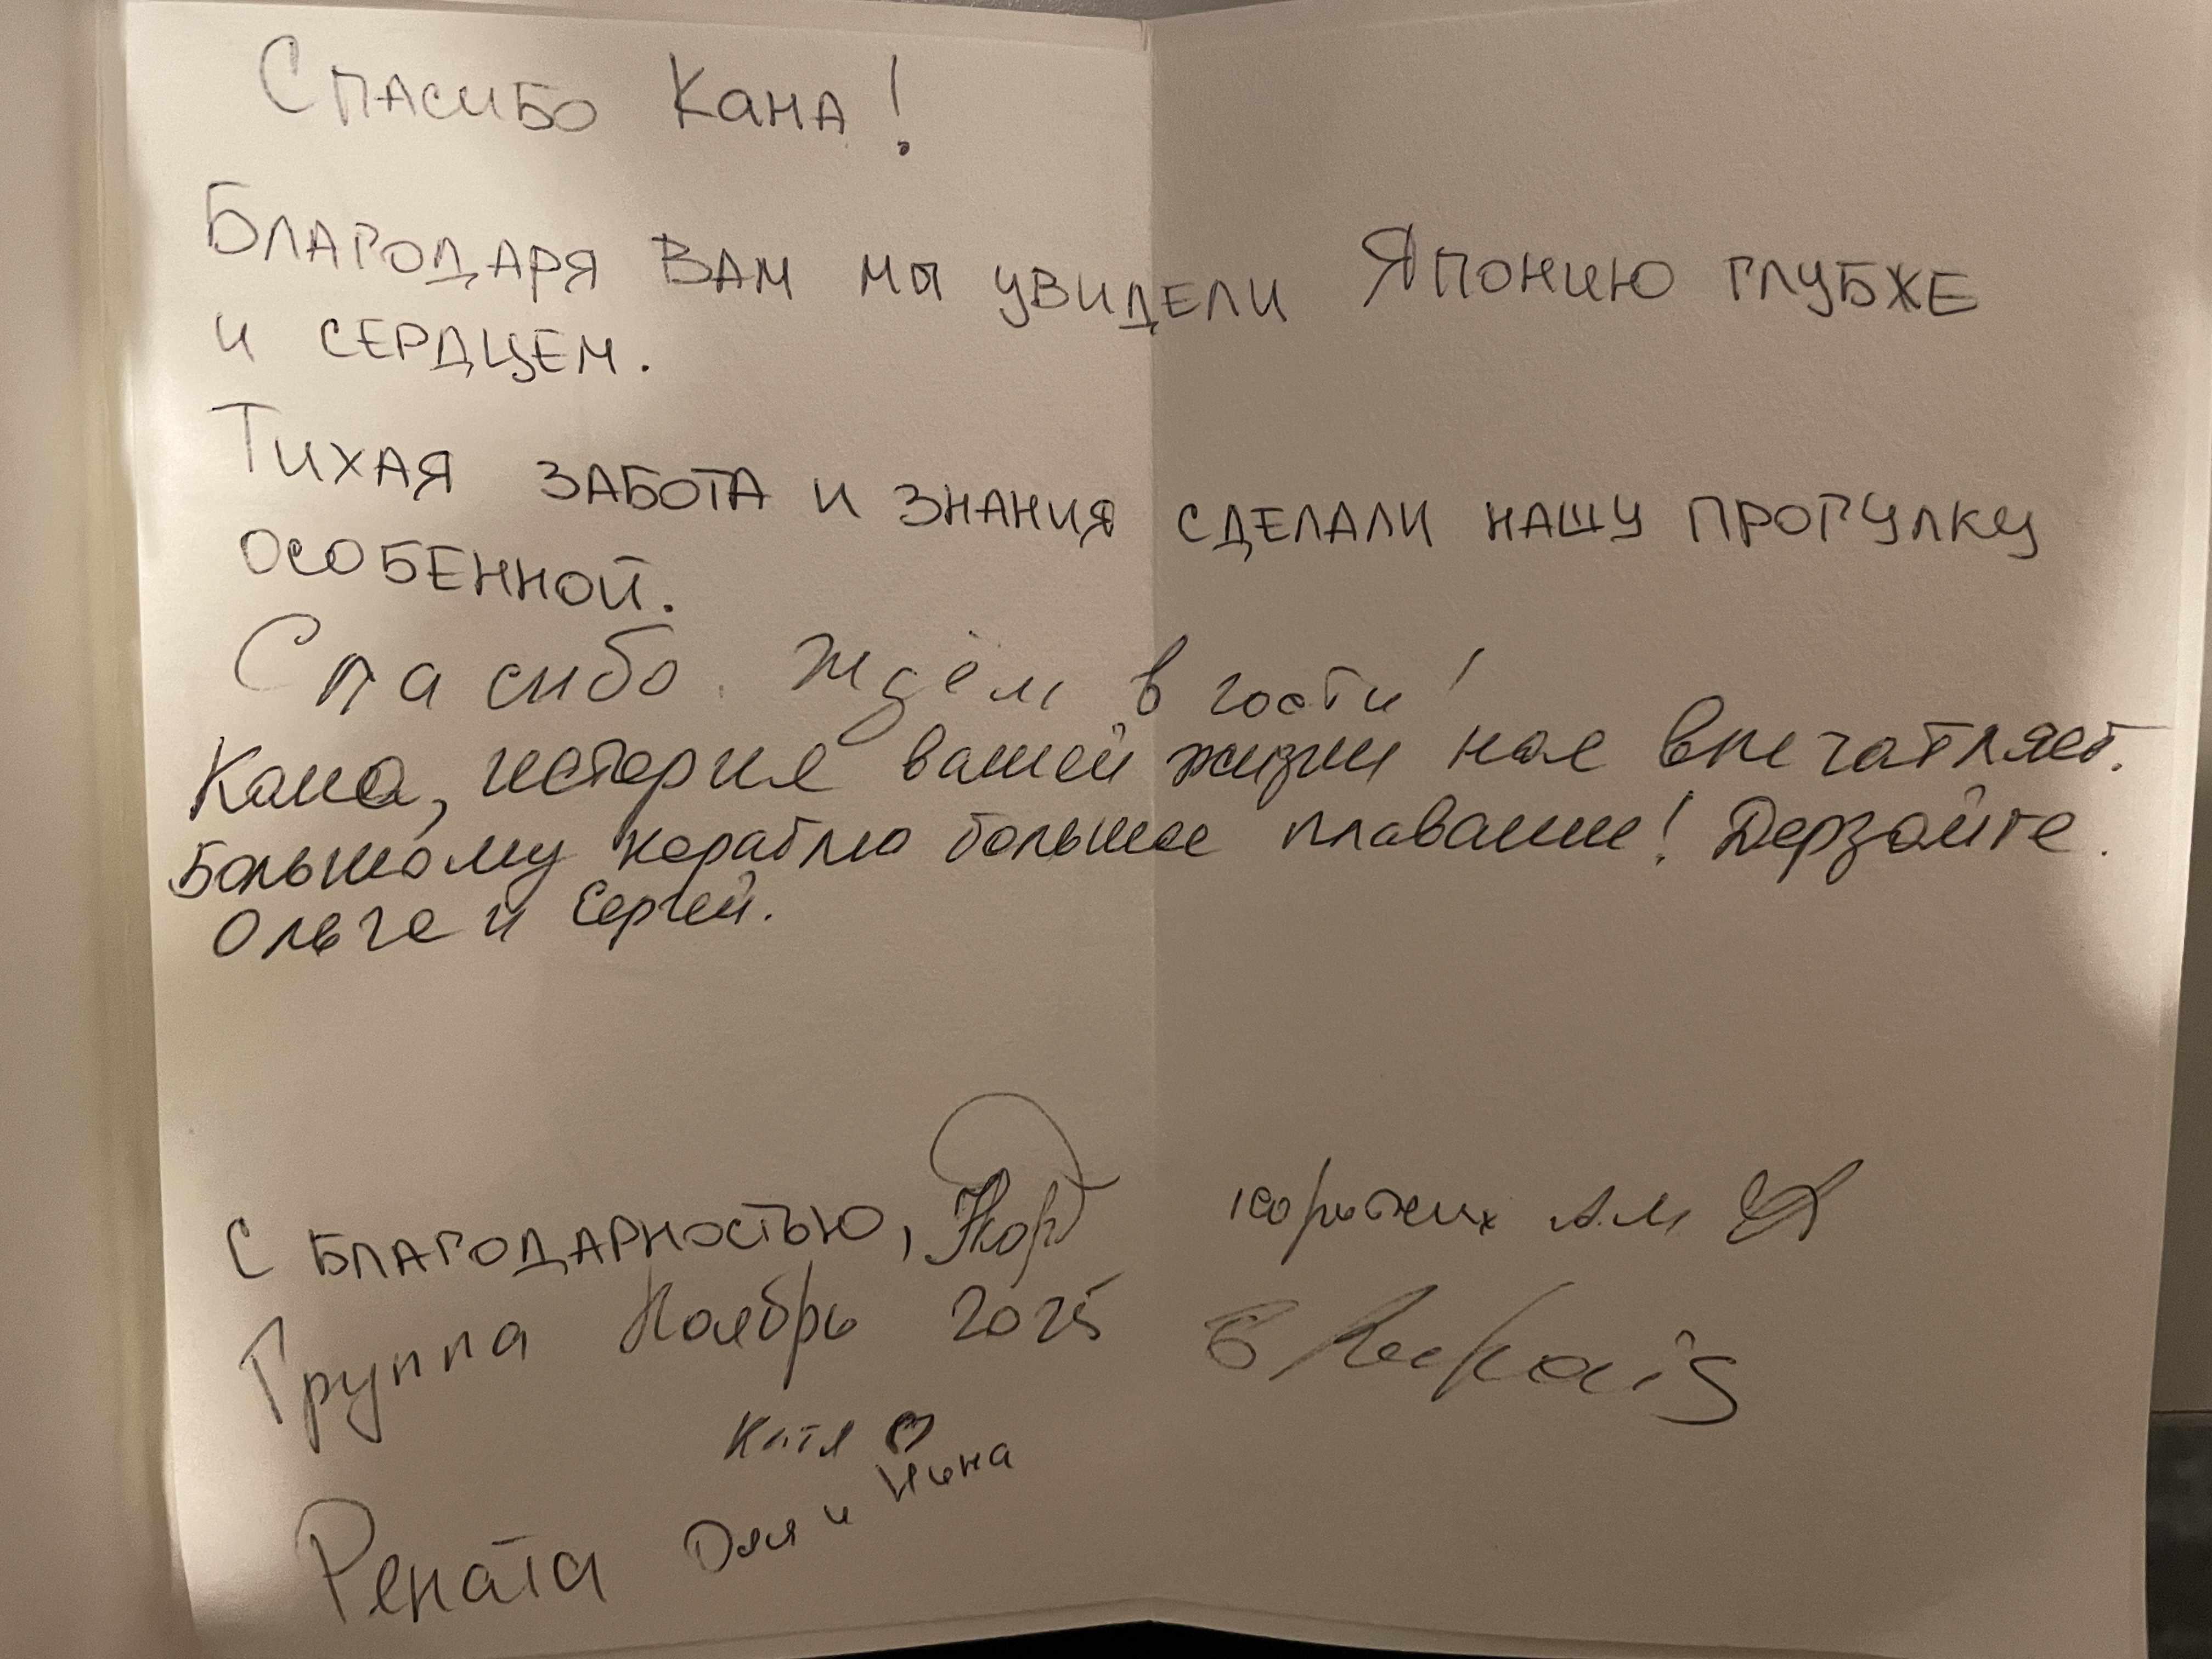 Спасибо Кана!
Благодаря Вам мы увидели Японию глубже
и сердцем.
Тихая забота и знания сделали нашу прогулку
особенной.
Спасибо. Ждём в гости!
Кана, история вашей жизни нас впечатляет.
Большому кораблю большое плавание! Дерзайте.
Ольга и Сергей.
С благодарностью,
Группа Ноябрь 2025
Катя
Оля и Нина
Рената